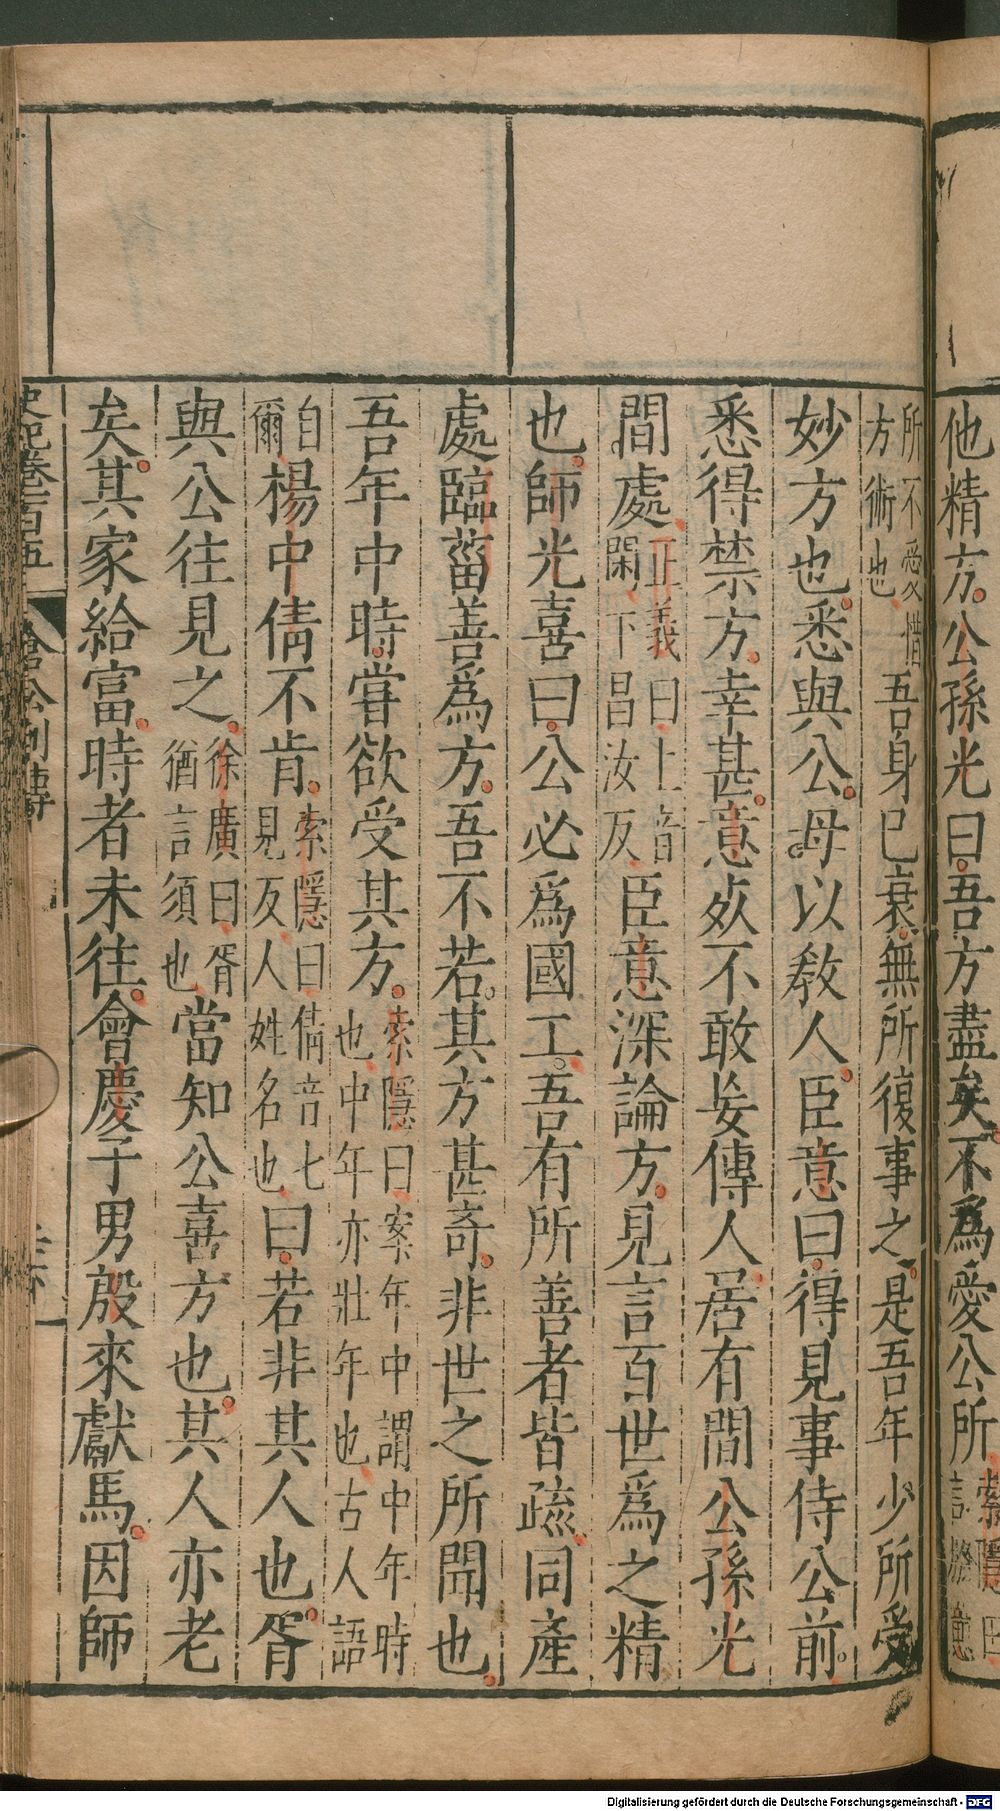 他精方公孫光曰吾方盡矣不爲愛公所
所不愛惜方術也吾身已衰無所復事之是吾年少所受
妙方也悉與公毋以教人臣意曰得見事侍公前
悉得禁方幸甚意死不敢妄傳人居有間公孫光
間處正義曰上音閑下昌汝反臣意深論方見言百世爲之精
也師光喜曰公必爲國工吾有所善者皆疏同產
處臨菑善爲方吾不若其方甚奇非世之所聞也
吾年中時嘗欲受其方索隱曰案年中謂中年時也中年亦壯年也古人語
自爾楊中倩不肯索隱曰倩音七見反人姓名也曰若非其人也胥
與公往見之徐廣曰胥猶言須也當知公喜方也其人亦老
矣其家給富時者未往會慶子男殷來獻馬因師
史記卷一百五 倉公列傳
Digitalisierung gefördert durch die Deutsche Forschungsgemeinschaft - DFG